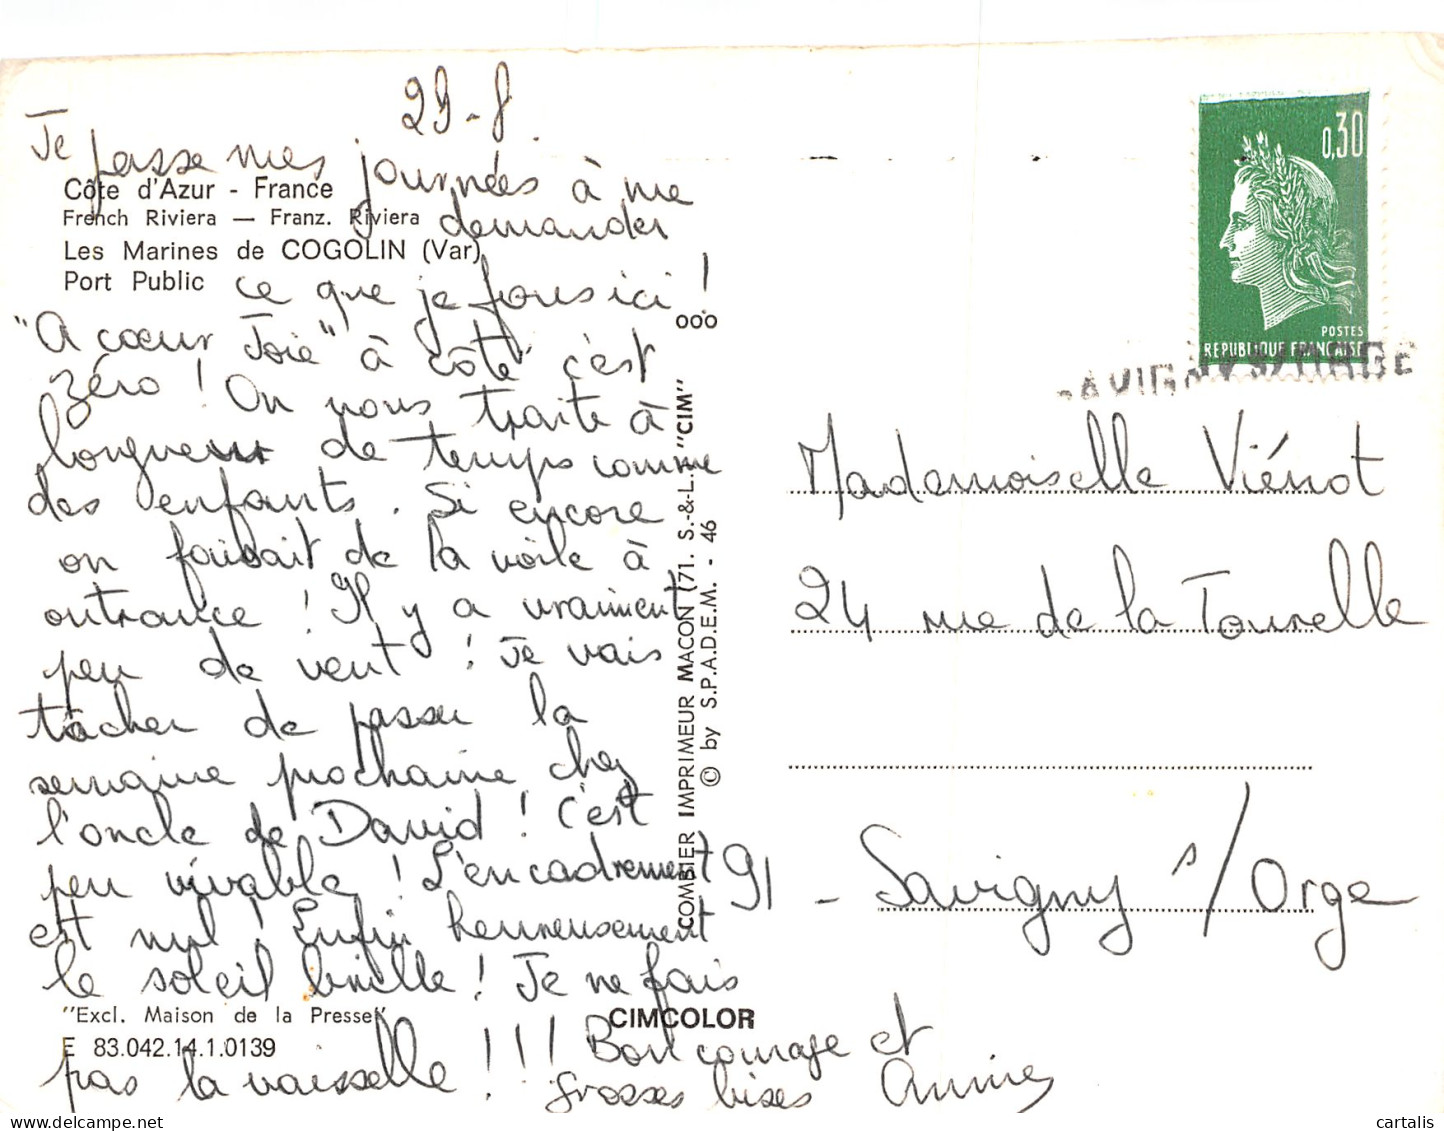 29-8
Je passe mes journées à me
Côte d'Azur - France
French Riviera — Franz. Riviera
demander
Les Marines de COGOLIN (Var)
Port Public
ce que je fous ici !
"A cœur Joie" à côté c'est
zéro ! On nous traite à
longueur de temps comme
des enfants. Si encore
on faisait de la voile à
outrance ! Il y a vraiment
peu de vent ! Je vais
tâcher de passer la
semaine prochaine chez
l'oncle de David ! C'est
peu vivable ! L'encadrement
est nul ! Enfin heureusement
le soleil brille ! Je ne fais
"Excl. Maison de la Presse"
E 83.042.14.1.0139
pas la vaisselle !!! Bon courage et
grosses bises Annie
CIMCOLOR
COMBIER IMPRIMEUR MACON (71. S.-&-L.) "CIM"
© by S.P.A.D.E.M. - 46
000
0,30
POSTES
REPUBLIQUE FRANCAISE
SAVIGNY S/ORGE
Mademoiselle Viénot
24 rue de la Tourelle
91 - Savigny s/Orge
cartalis
delcampe.net